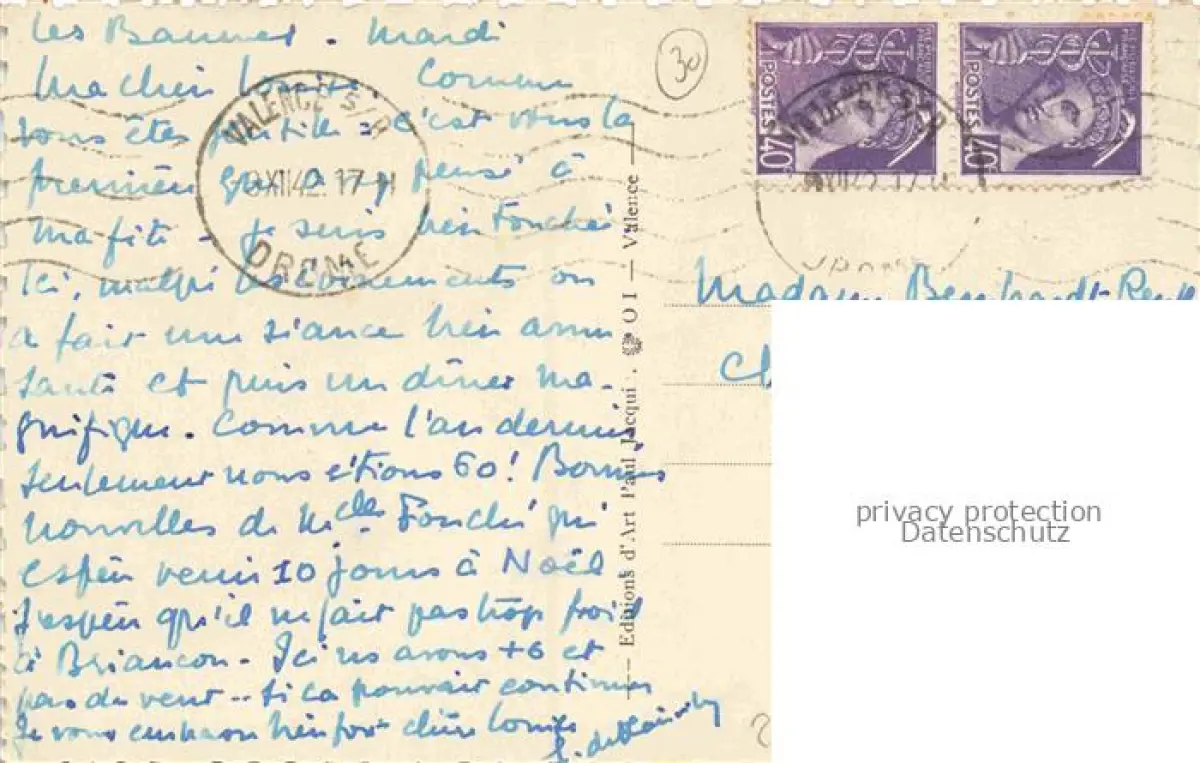 Les Baumes. Mardi
Ma chère Comme
vous êtes gentille = c'est vous la
première qui a pensé à
ma fête – je suis bien touchée
Ici, malgré les événements on
a fait une séance bien amu
sante et puis un dîner ma-
gnifique. Comme l'an dernier
seulement nous étions 60! Bonnes
nouvelles de Melle Fouché qui
espère venir 10 jours à Noël
J'espère qu'il ne fait pas trop froid
à Briançon – Ici ns avons +6 et
pas de vent -- si ça pouvait continuer
Je vous embrasse bien fort chère Louise
30
VALENCE S/R
XII 42. 17 H
DROME
POSTES 40c
POSTES 40c
Editions d'Art Paul Jacqui. O I — Valence
Madame
privacy protection
Datenschutz